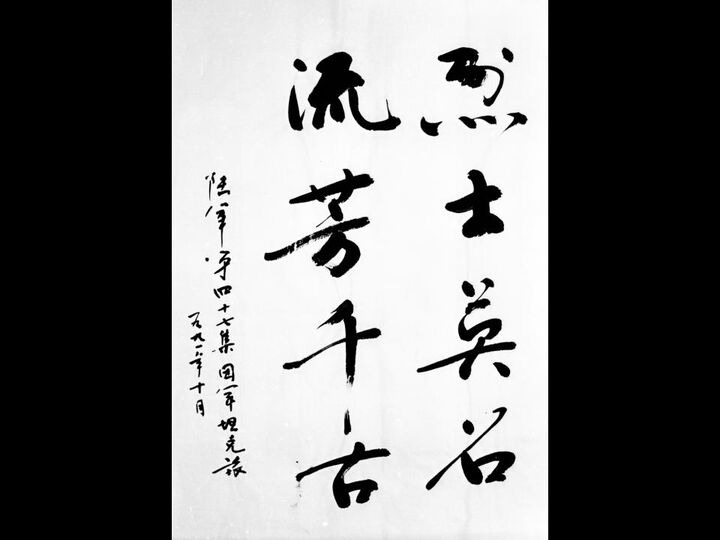 烈士英名
流芳千古
陆军第四十七集团军坦克旅
一九九一年十月